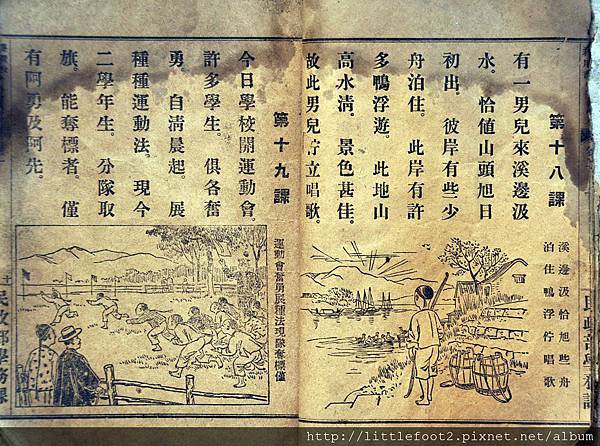 第十八課
溪邊汲恰旭些舟
泊住鴨浮佇唱歌
有一男兒來溪邊汲
水。恰値山頭旭日
初出。彼岸有些少
舟泊住。此岸有許
多鴨浮遊。此地山
高水淸。景色甚佳。
故此男兒佇立唱歌。
第十九課
運動會奮勇展種法現隊奪標僅
今日學校開運動會。
許多學生。俱各奮
勇。自淸晨起。展
種種運動法。現今
二學年生。分隊取
旗。能奪標者。僅
有阿勇及阿先。
民政部學務課
http://littlefoot2.pixnet.net/album